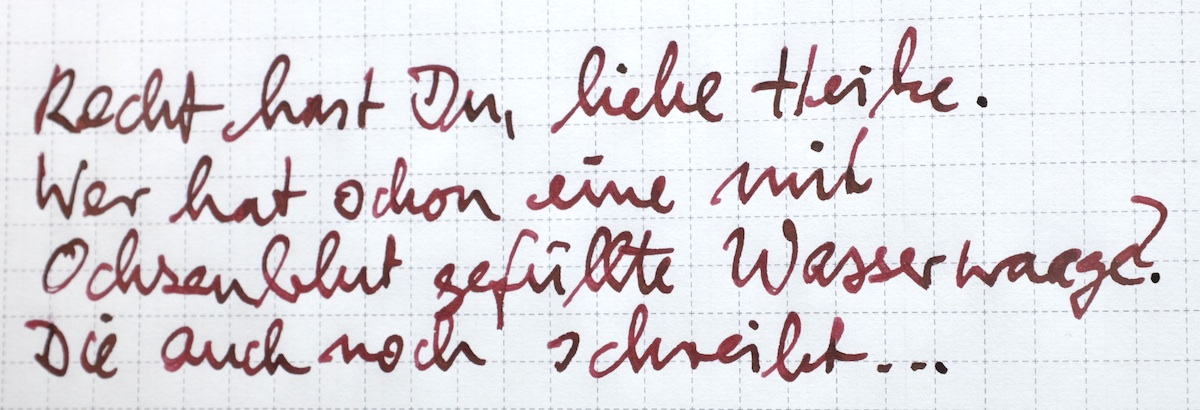 Recht hast Du, liebe Heike.
Wer hat schon eine mit
Ochsenblut gefüllte Wasserwaage?
Die auch noch schreibt...